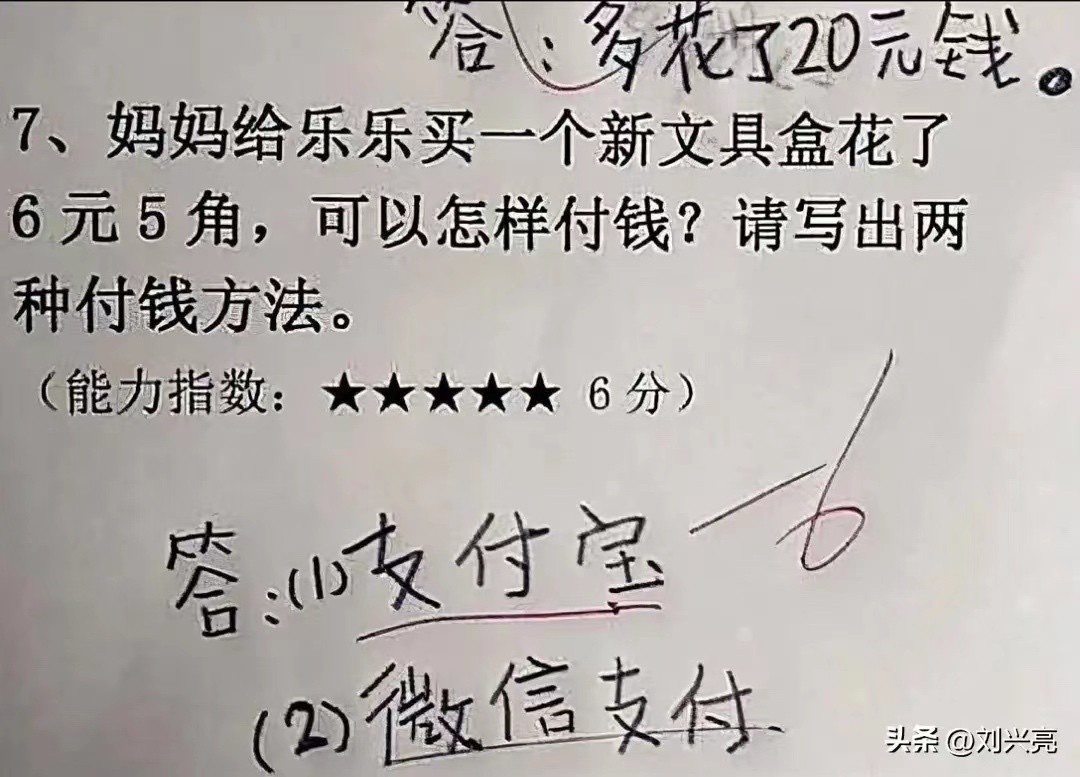 答：多花了20元钱。
7、妈妈给乐乐买一个新文具盒花了
6元5角，可以怎样付钱？请写出两
种付钱方法。
（能力指数：★★★★★ 6分）
-6
答：(1)支付宝
(2)微信支付.
头条 @刘兴亮